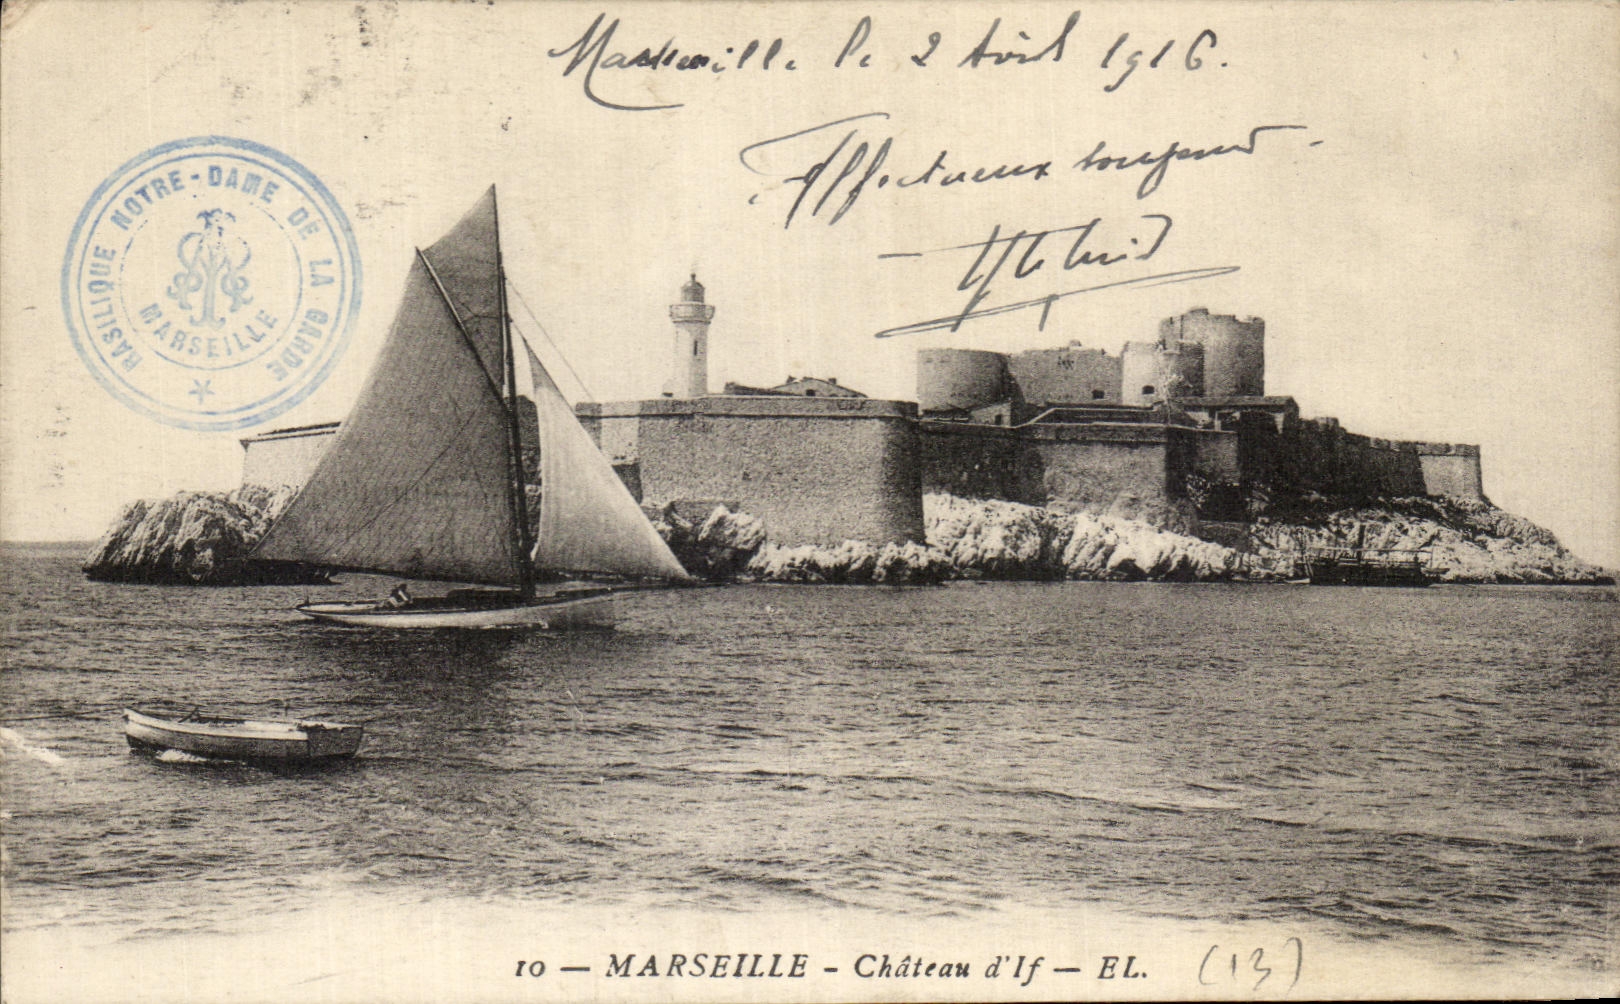 Marseille le 2 Avril 1916.
Affectueux
BASILIQUE NOTRE-DAME DE LA GARDE
MARSEILLE
10 — MARSEILLE - Château d'If — EL.
(13)